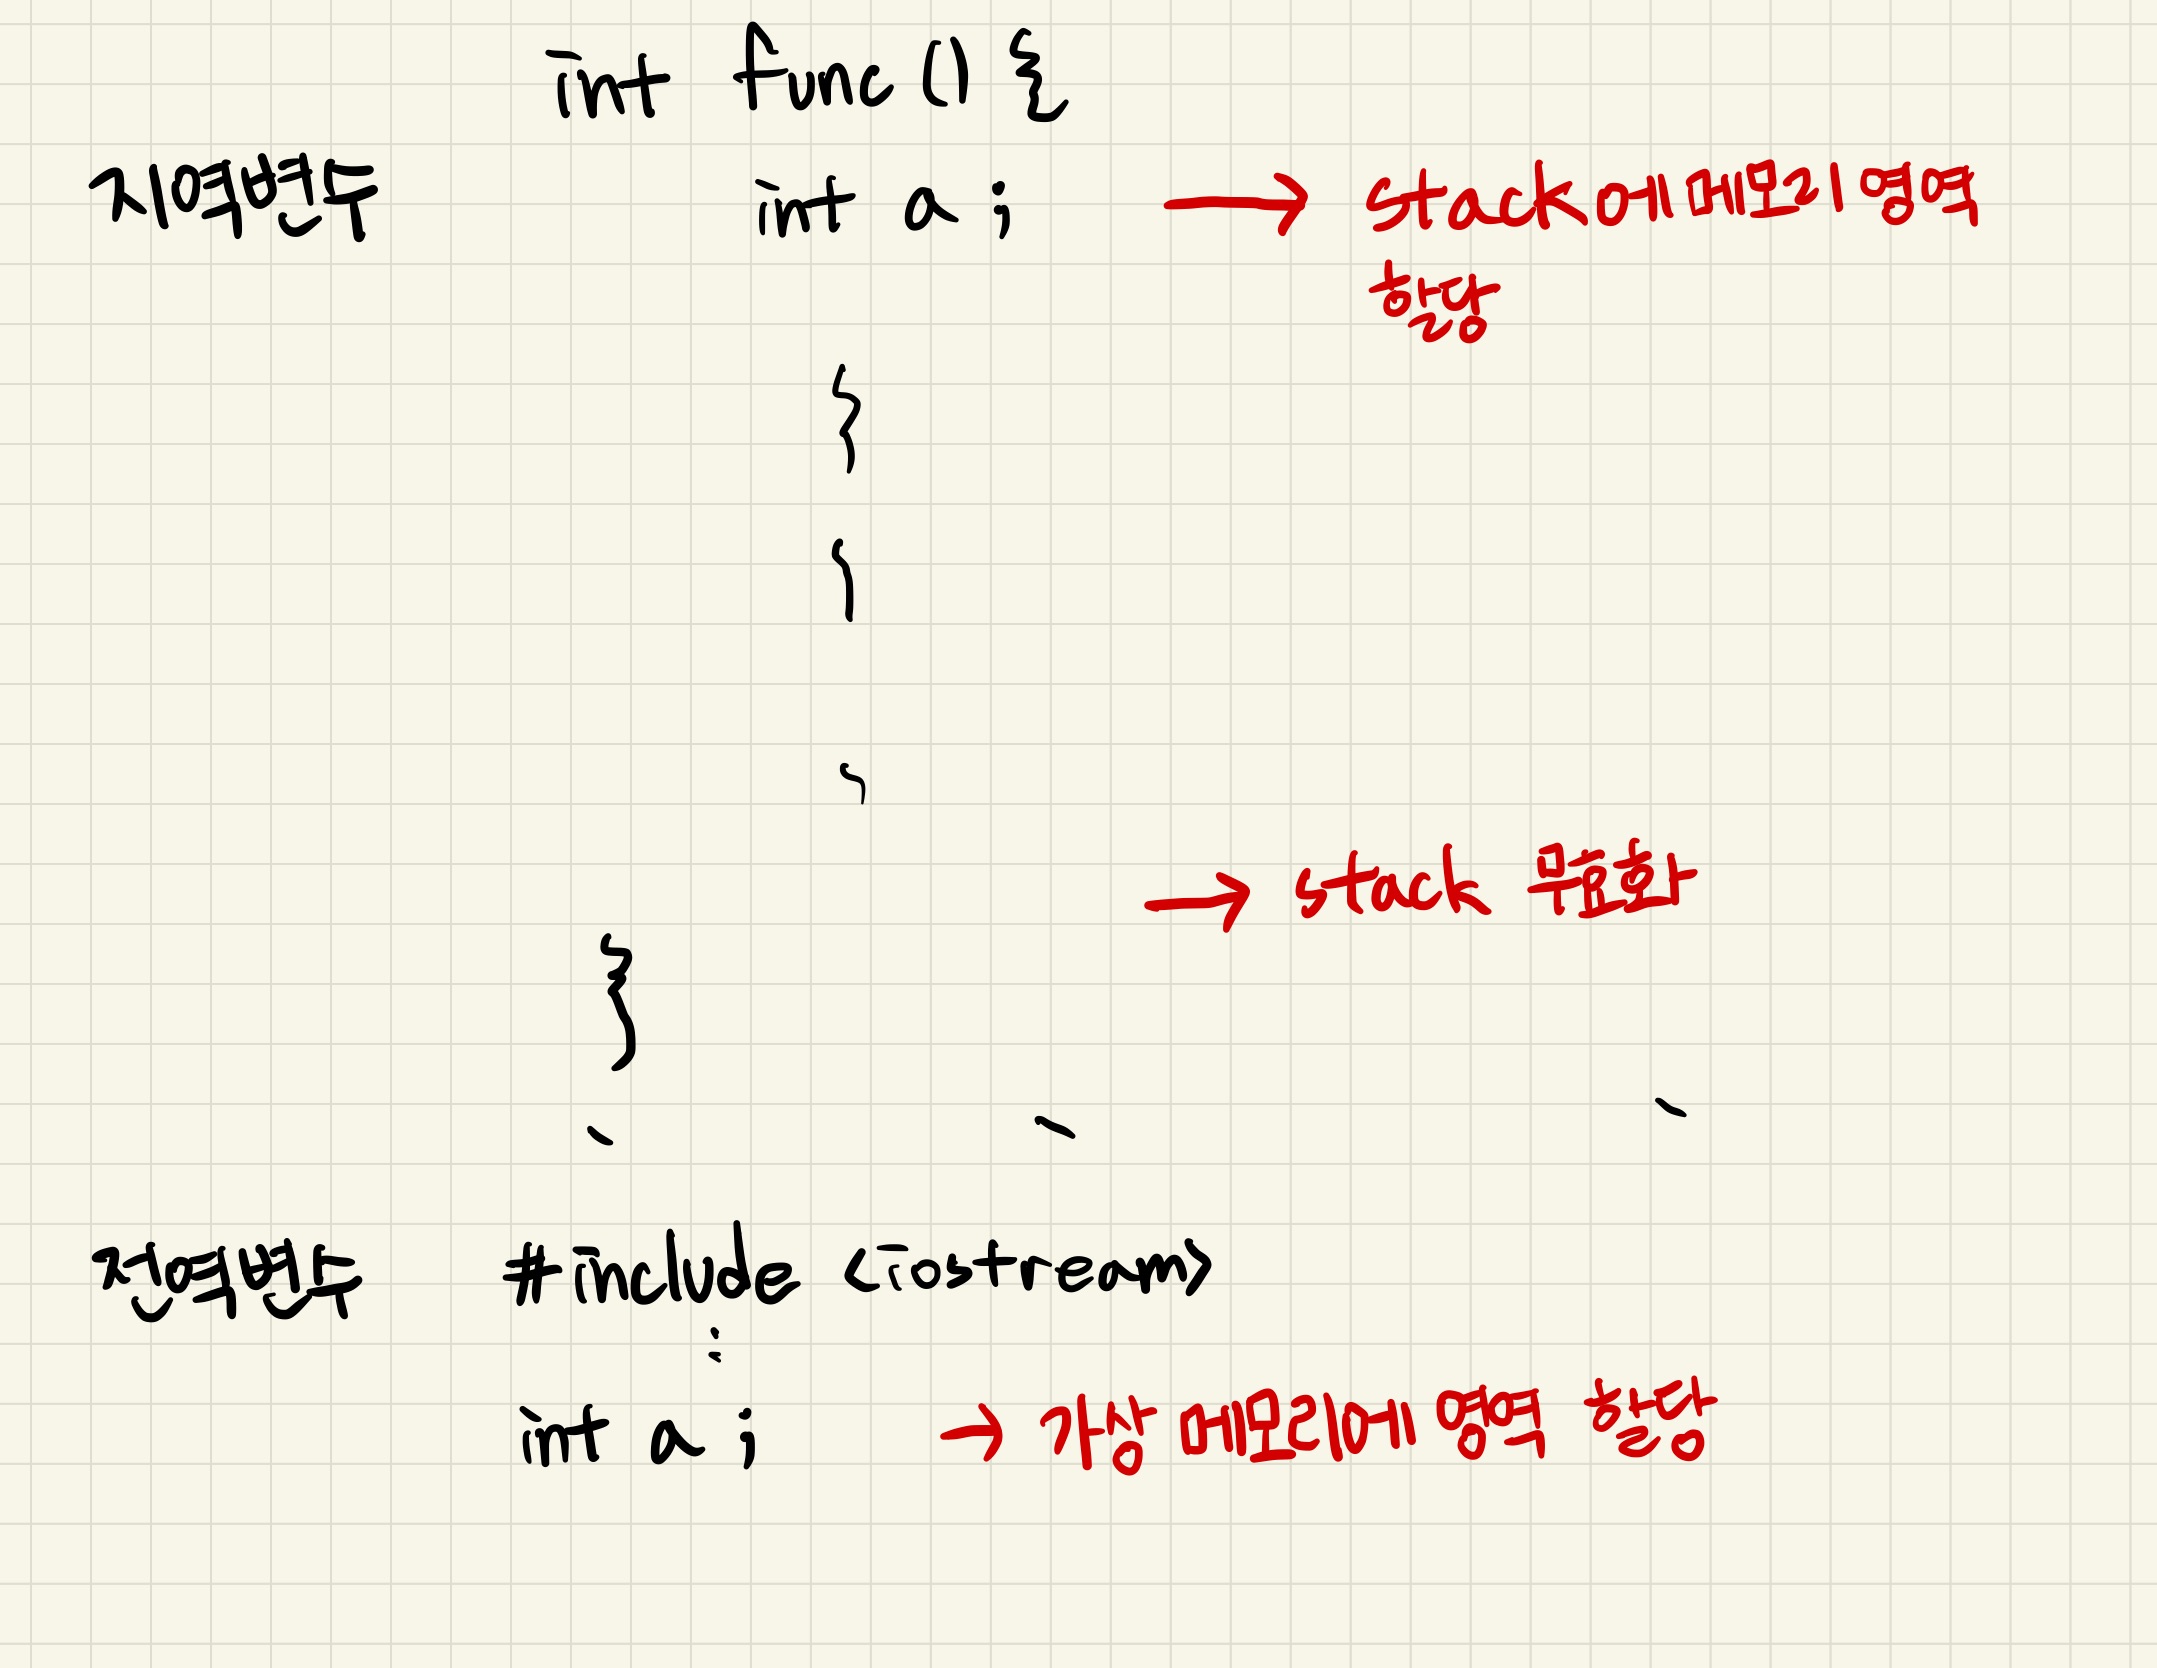 int func () {
지역변수 int a ; → stack에 메모리 영역
할당
→ stack 무효화
}
전역변수 #include <iostream>
:
int a ; → 가상 메모리에 영역 할당